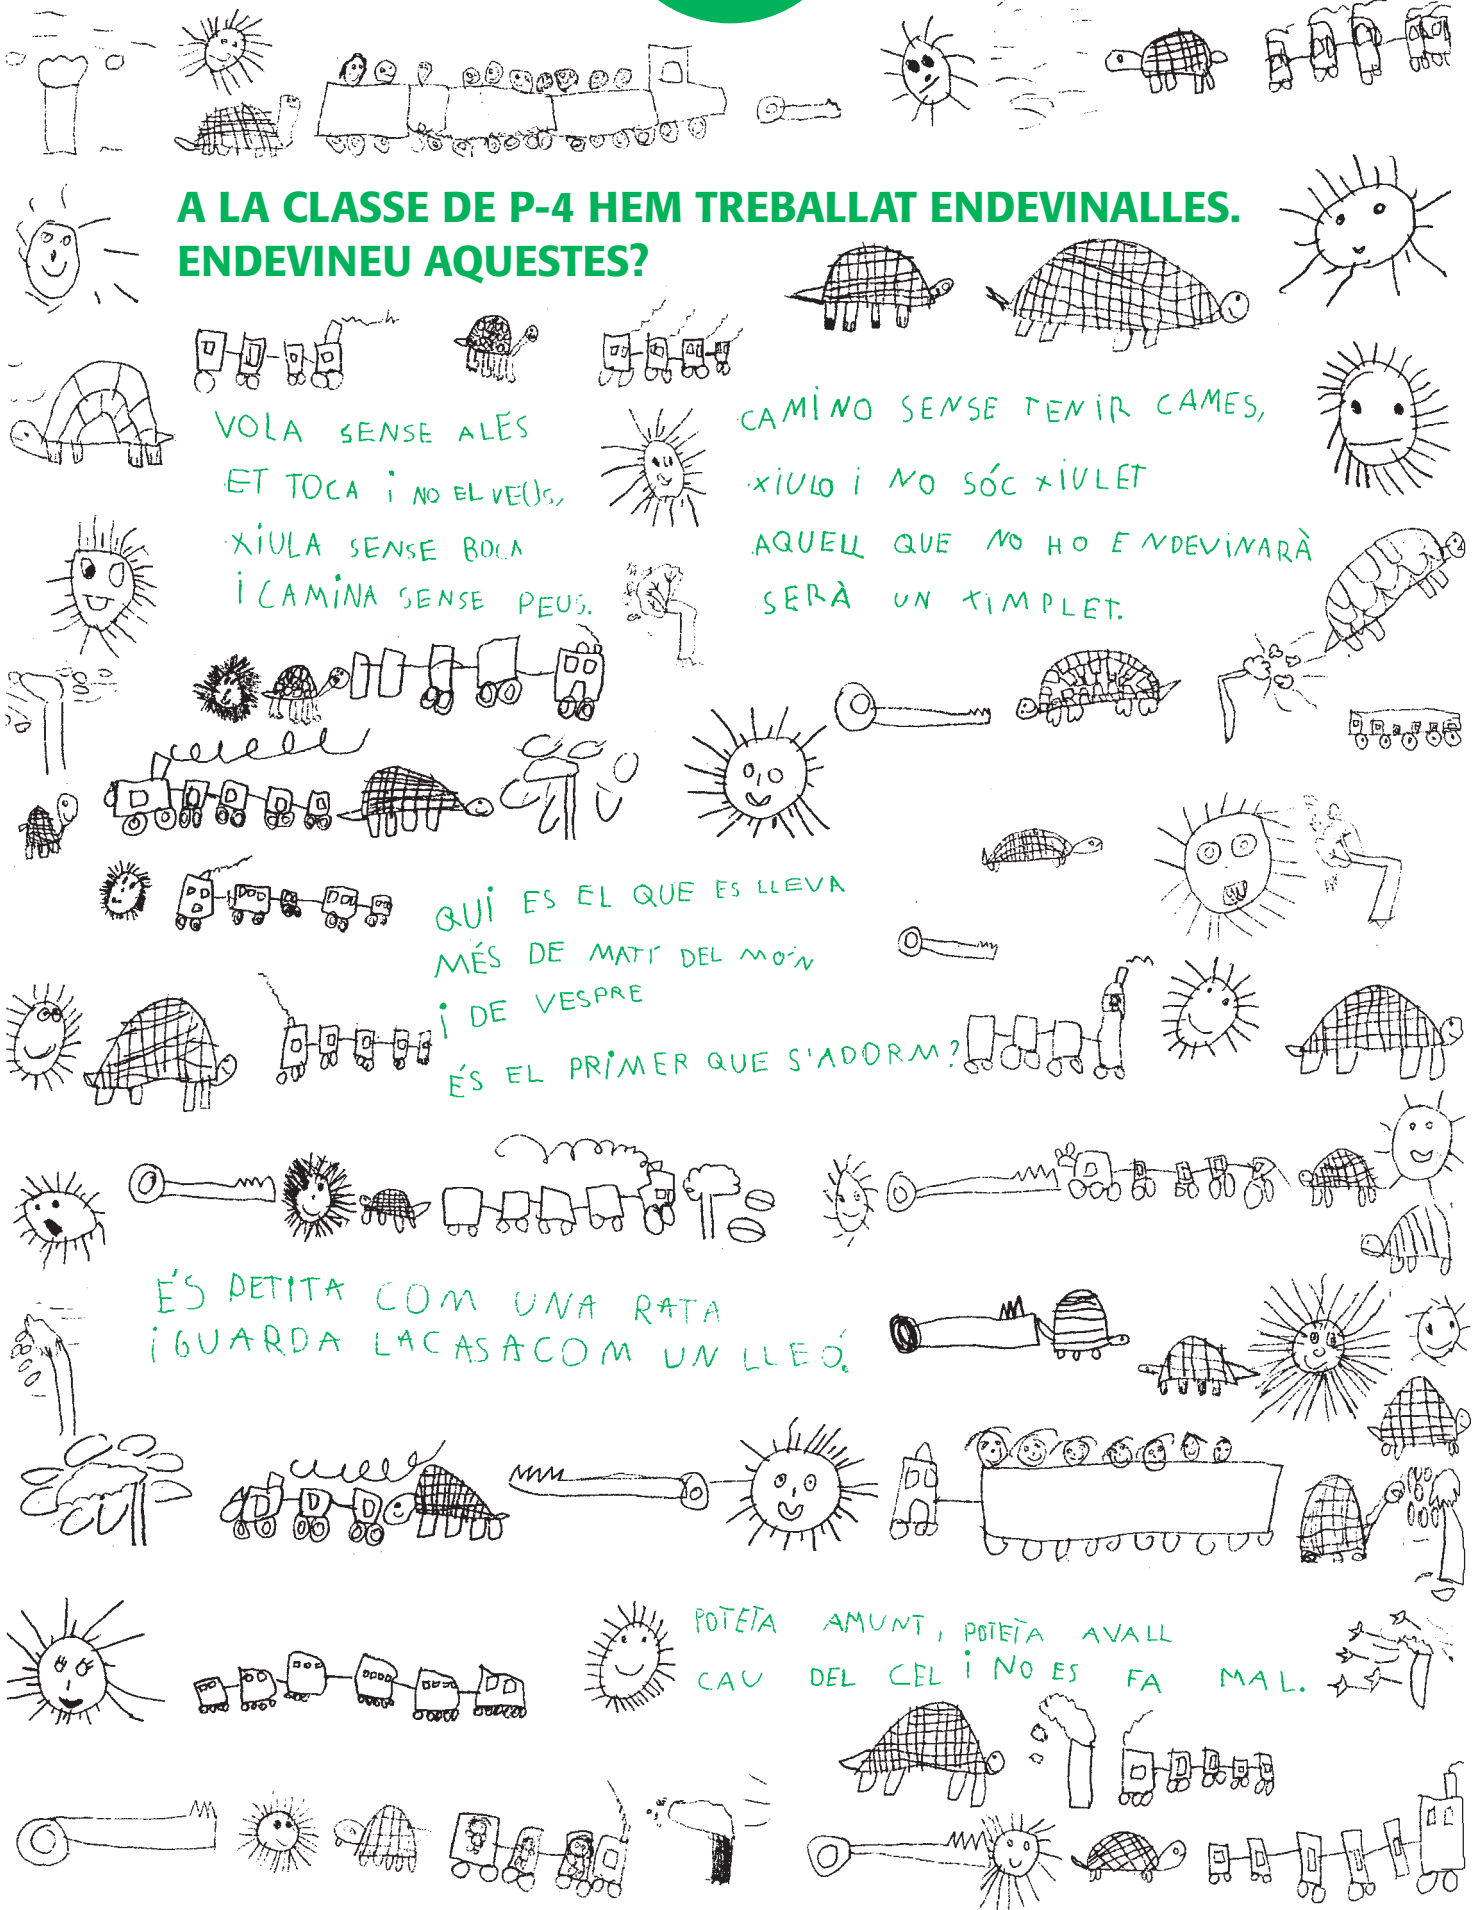 A LA CLASSE DE P-4 HEM TREBALLAT ENDEVINALLES.
ENDEVINEU AQUESTES?
VOLA SENSE ALES
ET TOCA i NO EL VEUS,
XiULA SENSE BOCA
i CAMiNA SENSE PEUS.
CAMiNO SENSE TENiR CAMES,
XiULO i NO SÓC XiULET
AQUELL QUE NO HO ENDEViNARÀ
SERÀ UN XiMPLET.
QUi ES EL QUE ES LLEVA
MÉS DE MATÍ DEL MÓN
i DE VESPRE
ÉS EL PRiMER QUE S'ADORM?
ÉS PETITA COM UNA RATA
i GUARDA LA CASA COM UN LLEÓ.
POTETA AMUNT, POTETA AVALL
CAU DEL CEL i NO ES FA MAL.